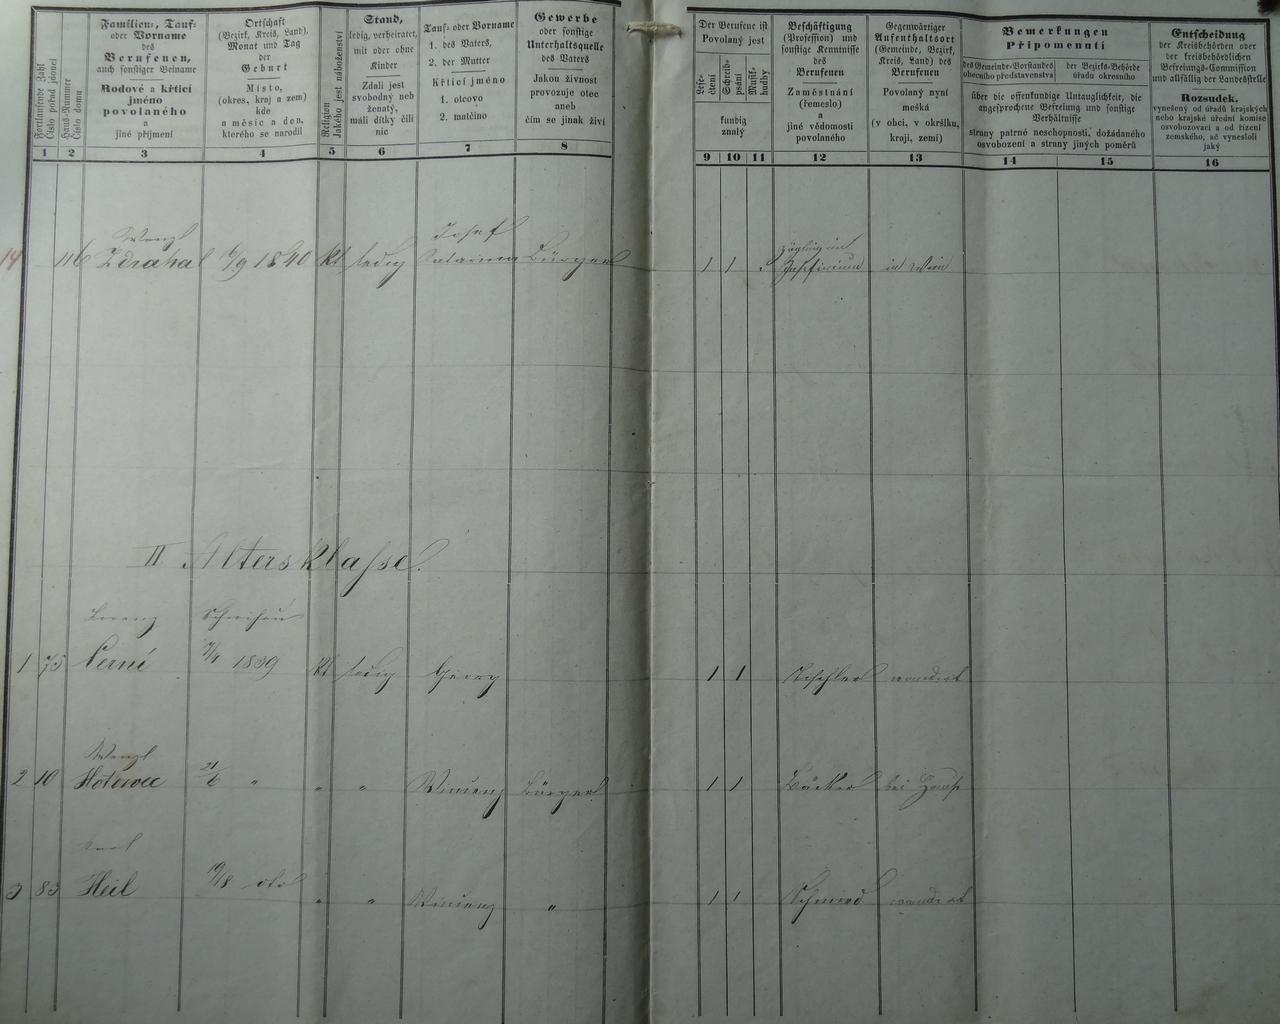 Fortlaufende Zahl
Číslo pořad jdoucí
1
Haus-Nummer
Číslo domu
2
Familien-, Tauf-
oder Vorname
des
Berufenen,
auch sonstiger Beiname
Rodové a křticí
jméno
povolaného
a
jiné příjmení
3
Ortschaft
(Bezirk, Kreis, Land),
Monat und Tag
der
Geburt
Místo,
(okres, kraj a zem)
kde
a měsíc a den,
kterého se narodil
4
Religion
Jakého jest náboženství
5
Stand,
ledig, verheiratet,
mit oder ohne
Kinder
Zdali jest
svobodný neb
ženatý,
máli dítky čili
nic
6
Tauf- oder Vorname
1. des Vaters,
2. der Mutter
Křticí jméno
1. otcovo
2. matčino
7
Gewerbe
oder sonstige
Unterhaltsquelle
des Vaters
Jakou živnost
provozuje otec
aneb
čím se jinak živí
8
Der Berufene ist
Povolaný jest
Lese-
čtení
Schreib-
psání
Musik-
hudby
kundig
znalý
9 10 11
Beschäftigung
(Profession) und
sonstige Kenntnisse
des
Berufenen
Zaměstnání
(řemeslo)
a
jiné vědomosti
povolaného
12
Gegenwärtiger
Aufenthaltsort
(Gemeinde, Bezirk,
Kreis, Land) des
Berufenen
Povolaný nyní
meškà
(v obci, v okršíku,
kraji, zemi)
13
Bemerkungen
Připomenutí
des Gemeinde-Vorstandes
obecního představenstva
der Bezirks-Behörde
úřadu okresního
über die offenkundige Untauglichkeit, die
angesprochene Befreiung und sonstige
Verhältnisse
strany patrné neschopnosti, dožádaného
osvobození a strany jiných poměrů
14 15
Entscheidung
der Kreisbehörden oder
der kreisbehördlichen
Befreiungs-Commission
und allfällig der Landesstelle
Rozsudek,
vynešený od úřadů krajských
nebo krajské úřední komise
osvobozovací a od řízení
zemského, ač vynesloli
jaký
16
Wenzl Josef Zögling im
14 116 Zdrahal 6/9 1840 kt ledig Katarina Bürger 1 1 Josefinium in Wien
II Altersklasse.
Lorenz
1 75 Černí 1839 kt ledig Georg 1 1 Tischler wandert
Wenzl
2 10 Hotowec 21/6 " " " Winzenz Bürger 1 1 Bäcker bei Hause
Karl
3 83 Heil 10/8 dto " " Winzenz " 1 1 Schmied wandert